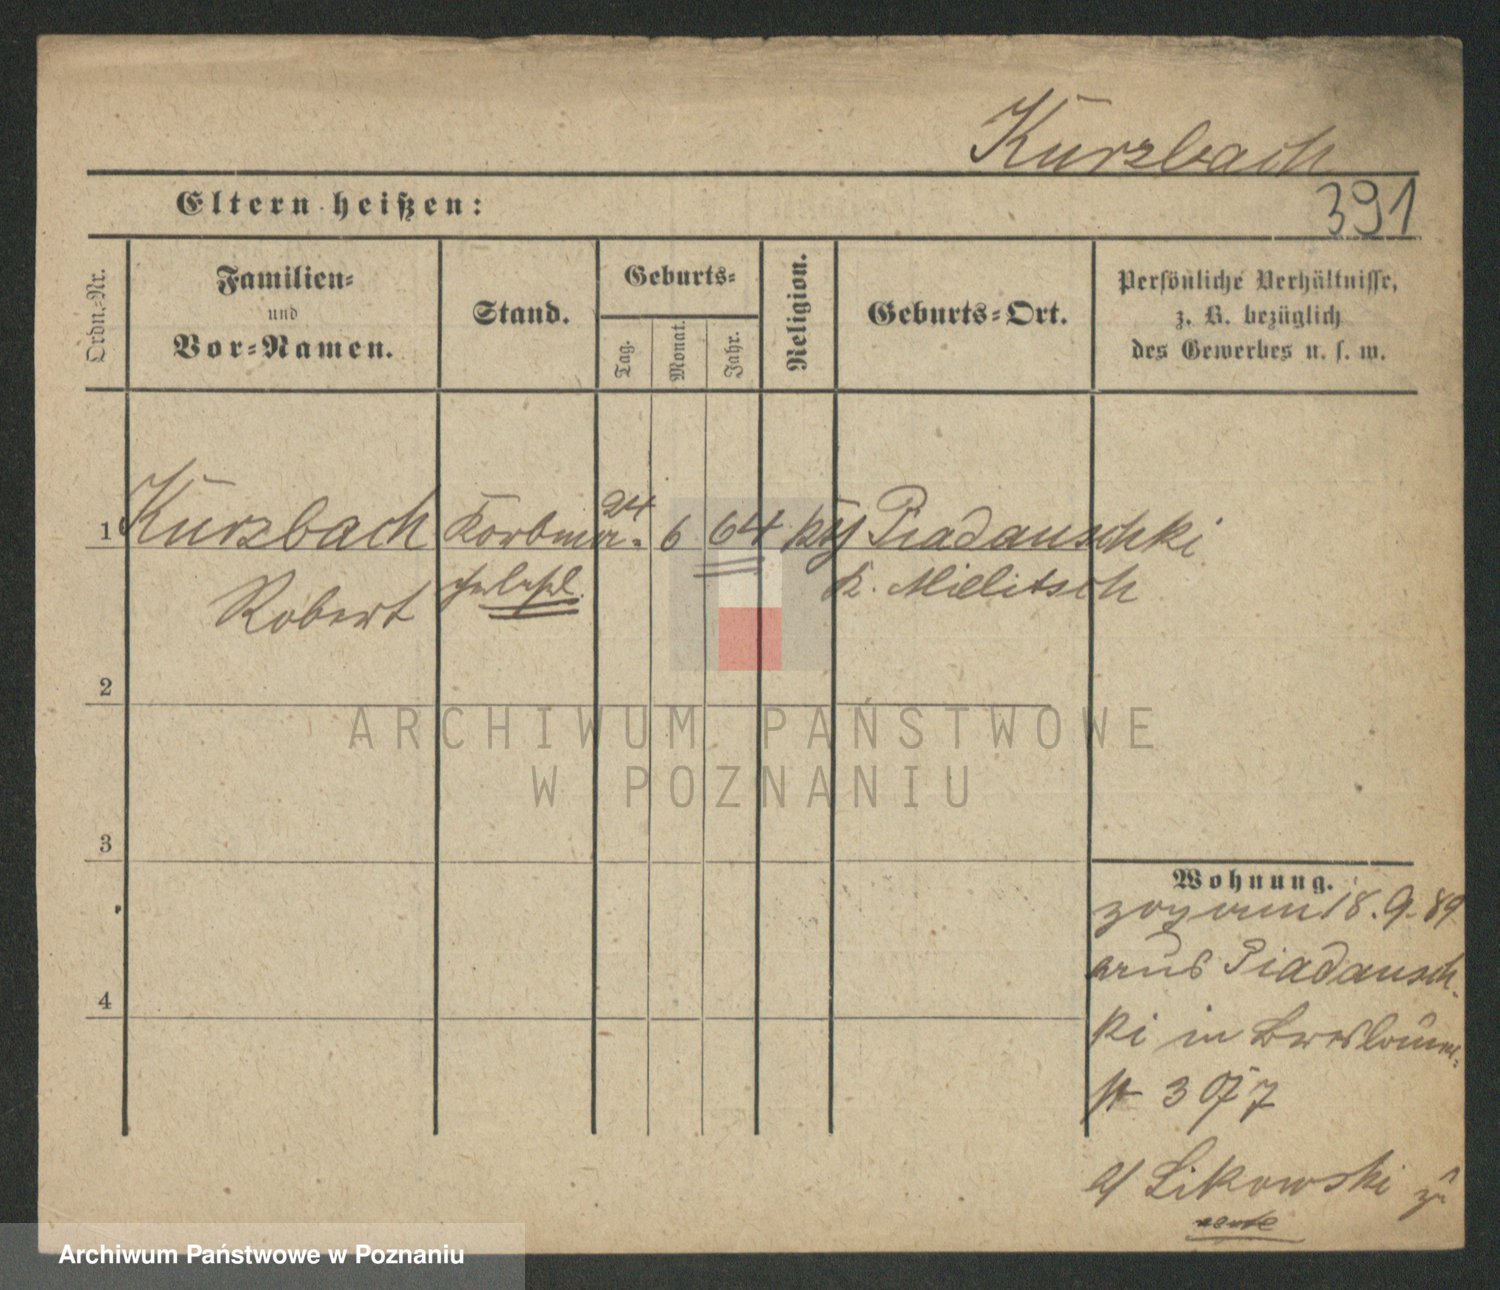 Kurzbach
391
Eltern heißen:
Ordn.-Nr.
Familien-
und
Vor-Namen.
Stand.
Geburts-
Tag.
Monat.
Jahr.
Religion.
Geburts-Ort.
Persönliche Verhältnisse,
z. B. bezüglich
des Gewerbes u. s. w.
1 Kurzbach Korbma- 24 6 64 kth Piadauschki
Robert K. Militsch
2
3
4
Wohnung.
zog am 18.9.89
aus Piadausch-
ki in Breslauer-
st 3
b/ Likowski zu
ARCHIWUM PAŃSTWOWE
W POZNANIU
Archiwum Państwowe w Poznaniu